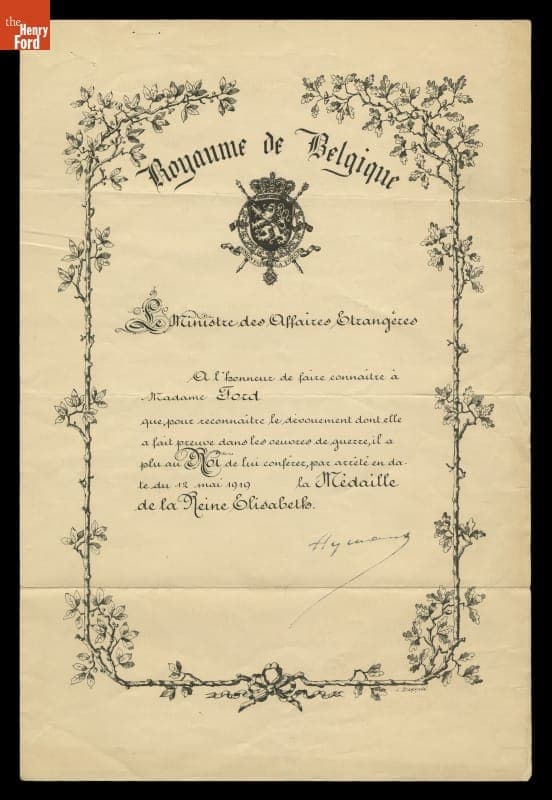 the
Henry
Ford
Royaume de Belgique
Le Ministre des Affaires Etrangères
A l'honneur de faire connaître à
Madame Ford
que, pour reconnaître le dévouement dont elle
a fait preuve dans les oeuvres de guerre, il a
plu au Roi de lui conférer, par arrêté en da-
te du 12 mai 1919 la Médaille
de la Reine Elisabeth.
Hymans